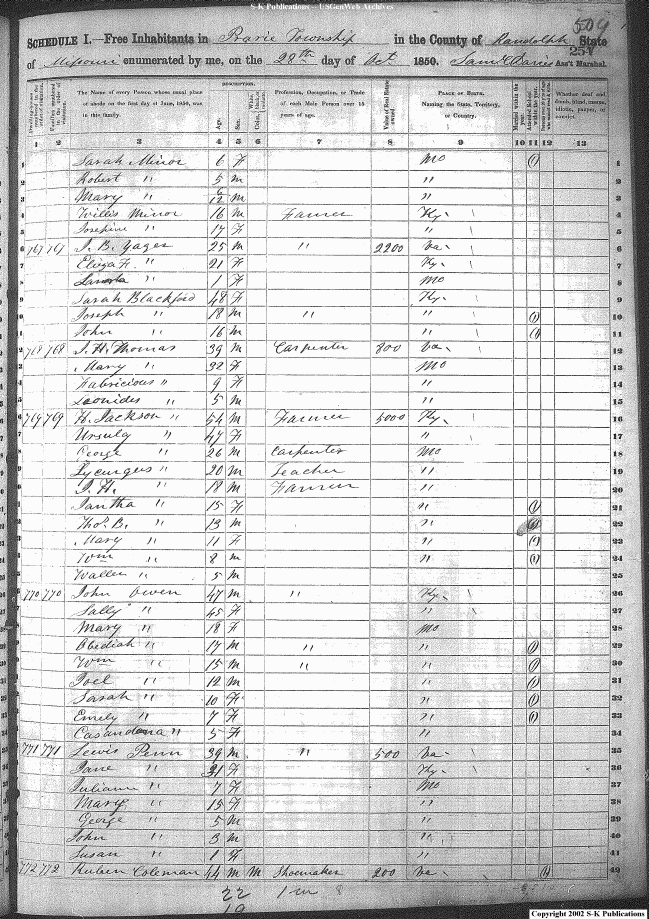 S-K Publications -- USGenWeb Archives
509
SCHEDULE I.—Free Inhabitants in Prarie Township in the County of Randolph State
of Missouri enumerated by me, on the 28th day of Oct 1850. Saml Davis Ass't Marshal.
DESCRIPTION.
The Name of every Person whose usual place of abode on the first day of June, 1850, was in this family.
Age
Sex
Profession, Occupation, or Trade of each Male Person over 15 years of age.
Value of Real Estate owned
PLACE OF BIRTH. Naming the State, Territory, or Country.
Married within the year.
Whether deaf and dumb, blind, insane, idiotic, pauper, or convict
1 2 3 4 5 6 7 8 9 10 11 12 13
1 Sarah Minor 6 F Mo (1) 1
2 Robert " 5 m " 2
3 Mary " 6/12 m " 3
4 Willis Minor 16 m Farmer Ky. 4
5 Josephine " 17 F " 5
6 767 767 J. B. Yager 25 m " 2200 Va. 6
7 Eliza F. " 21 F Ky. 7
8 " 1 F Mo 8
9 Sarah Blackford 48 F Ky. 9
10 Joseph " 18 m " " (1) 10
11 John " 16 m " (1) 11
12 768 768 J. H. Thomas 39 m Carpenter 800 Va. 12
13 Mary " 32 F Mo 13
14 Fabricious " 9 F " 14
15 Leonides " 5 m " 15
16 769 769 H. Jackson " 54 m Farmer 5000 Ky. 16
17 Ursula " 47 F " 17
18 George " 26 m Carpenter Mo 18
19 Lycurgus " 20 m Teacher " 19
20 J. H. " 18 m Farmer " 20
21 Iantha " 15 F " (1) 21
22 Thos. B. " 13 m " 22
23 Mary " 11 F " (1) 23
24 Wm " 8 m " (1) 24
25 Wallen " 5 m 25
26 770 770 John Owen 47 m " Ky. 26
27 Sally " 45 F " 27
28 Mary " 18 F Mo 28
29 Obediah " 17 m " " (1) 29
30 Wm " 15 m " " (1) 30
31 Joel " 12 m " (1) 31
32 Sarah " 10 F " (1) 32
33 Emily " 7 F " (1) 33
34 Casandona " 5 F " 34
35 771 771 Lewis Penn 39 m " 500 Va. 35
36 Jane " 31 F Ky. 36
37 Juliann " 7 F Mo 37
38 Mary " 15 F " 38
39 George " 5 m " 39
40 John " 3 m " 40
41 Susan " 1 F " 41
42 772 772 Ruben Coleman 44 m M Shoemaker 200 Va. (1) 42
22 1 m
19
Copyright 2002 S-K Publications